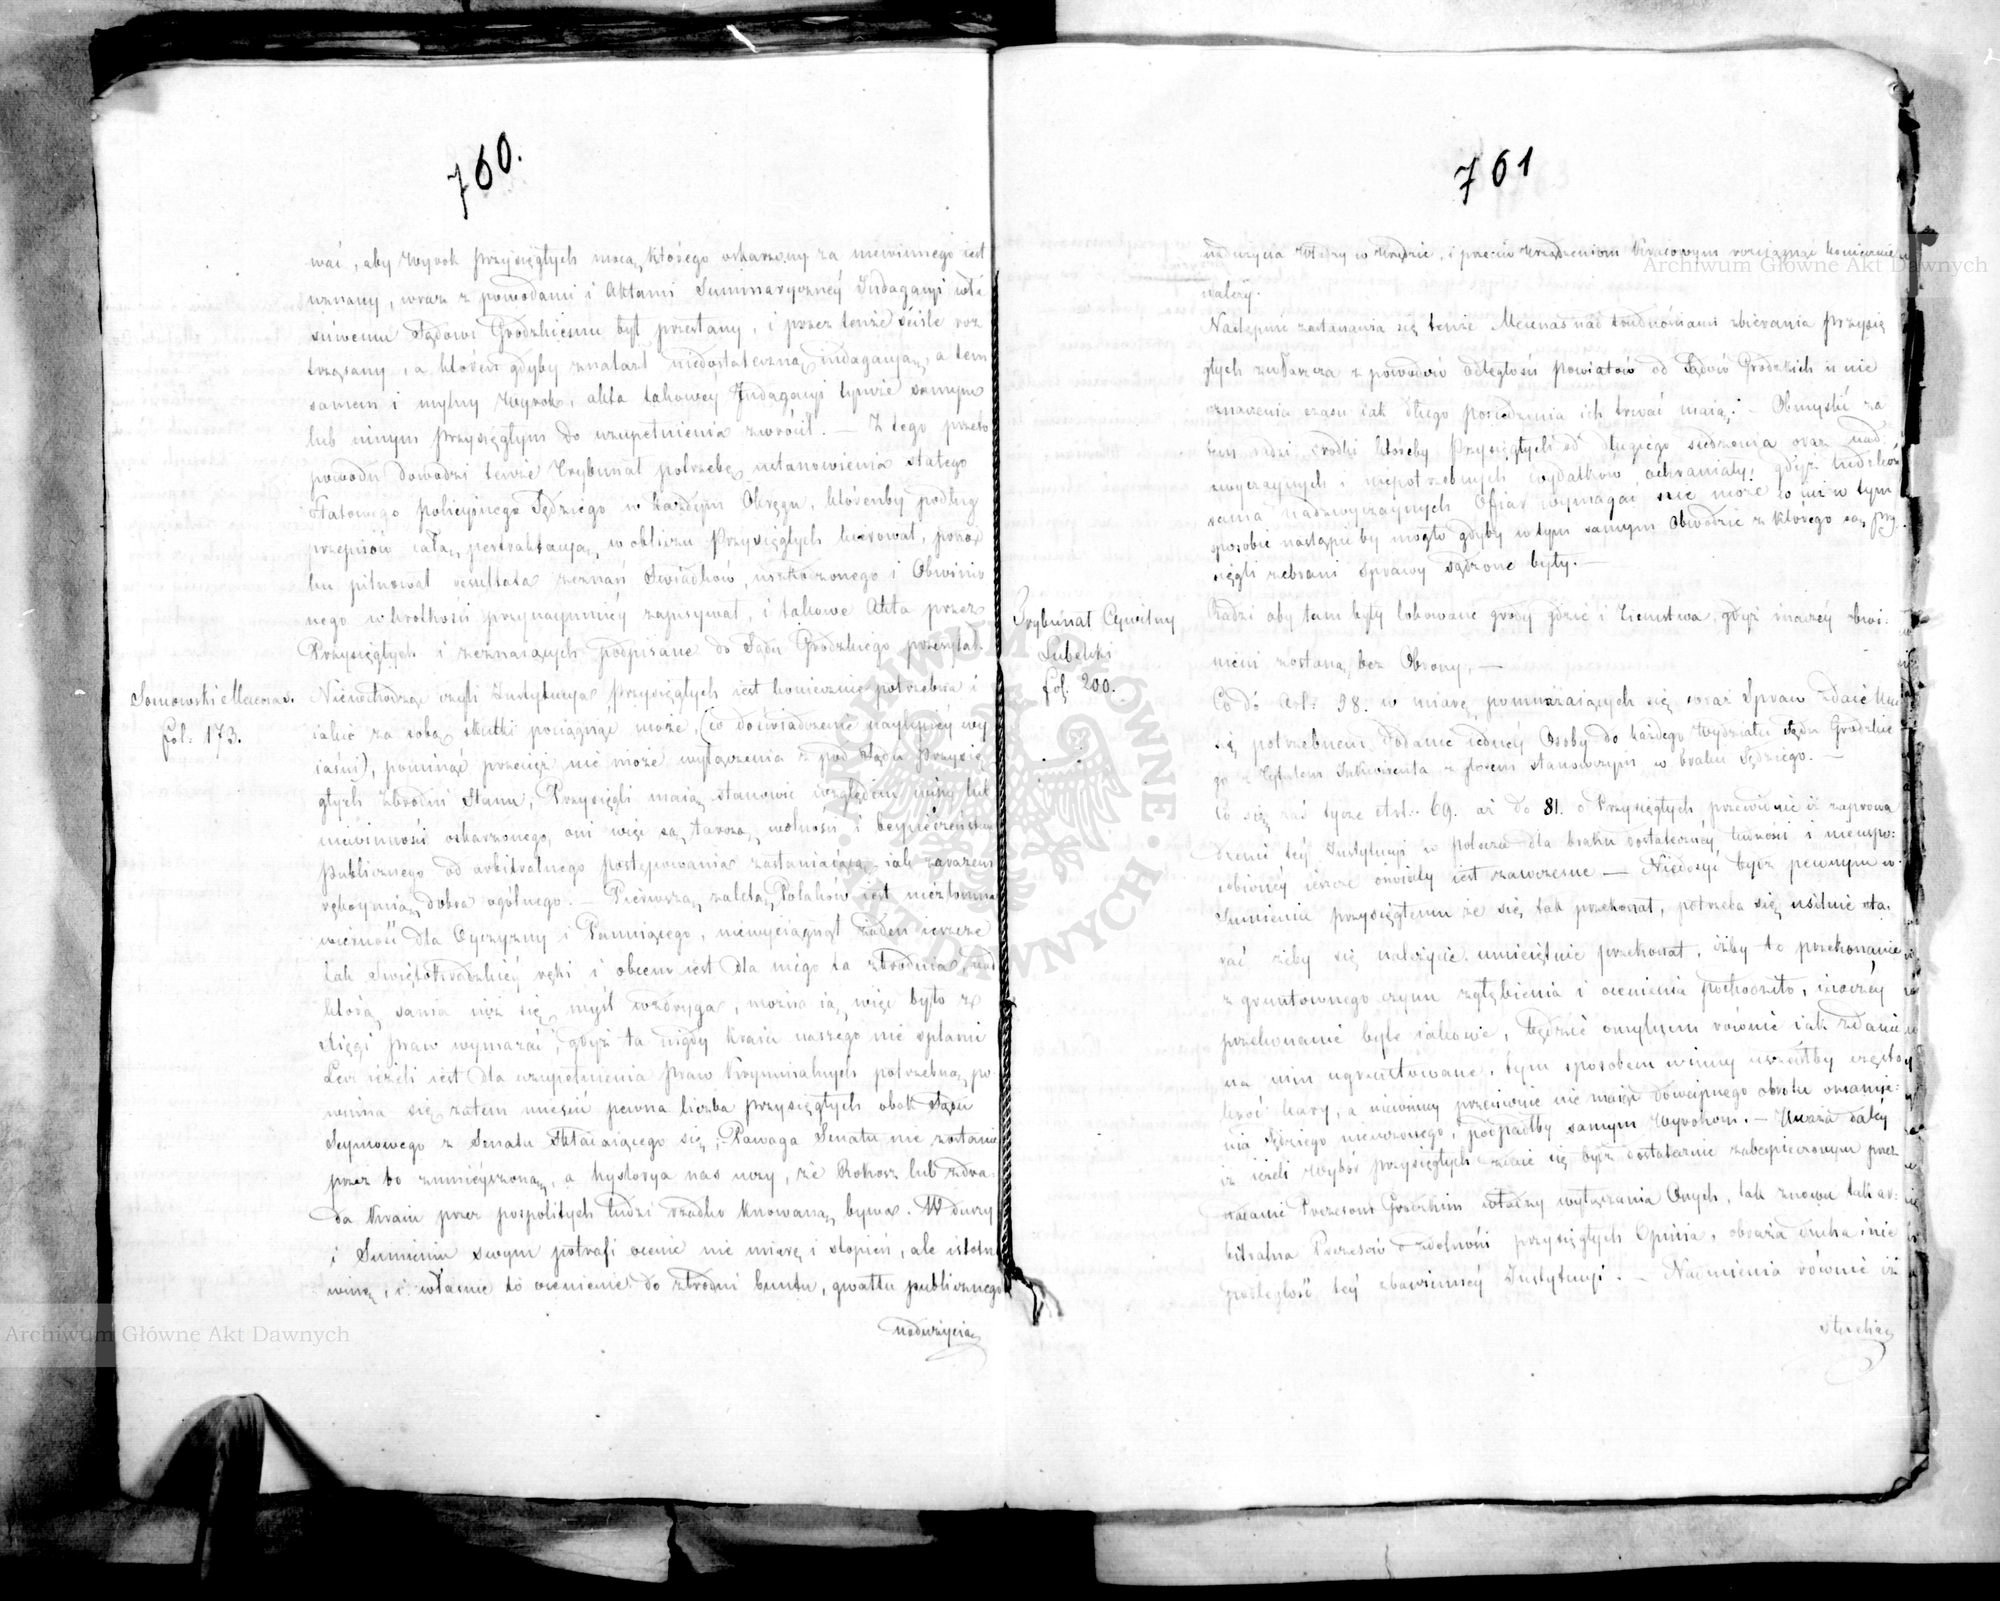 760.
wać, aby Wyrok Przysięgłych mocą którego oskarżony za niewinnego iest
uznany, wraz z powodami i Aktami Summaryczney Indagacyi wła
sciwemu Sądowi Grodzkiemu był przesłany, i przez tenże ściśle roz
trząsany, a któren gdyby znalazł niedostateczną indagacyą, a tem
samem i mylny Wyrok, akta takowey Indagacyi tymże samym
lub innym Przysięgłym do uzupełnienia zwrócił. — Z tego przeto
powodu dowodzi tenże Trybunał potrzebę ustanowienia stałego
Policyjnego Sędziego w każdym Okręgu, którenby podług
przepisów całą pertraktacyą w obliczu Przysięgłych kierował, porząd
ku pilnował resultata zeznań Swiadków, uszkodzonego i Obwinio
nego w krotkości przynaymniey zapisywał, i takowe Akta przez
Przysięgłych i zeznaiących podpisane do Sądu Grodzkiego przesyłał.
Mecenas.
fol. 173.
Niewchodząc czyli Instytucya Przysięgłych iest koniecznie potrzebna i
iakie za sobą skutki pociągnąc może, (co doświadczenie naylepiey wy
iaśni), pominąć przecież nie może wyłączenia z pod Sądu Przysię
głych zbrodni Stanu, Przysięgli maią stanowić względem winy lub
niewinności oskarżonego, oni więc są tarczą wolności i bezpieczeństwa
publicznego od arbitralnego postępowania zasłaniaiącą, iak zarazem
rękoymią dobra ogólnego. — Pierwszą zaletą Polaków iest niezłomna
wierność dla Oyczyzny i Panuiącego, niewyciągnął żaden ieszcze
tak Swiętokradzkiey ręki i obcem iest dla niego ta zbrodnia, nad
którą sama iuż się myśl wzdryga, można ią więc było z
Xięgi praw wymazać, gdyż ta nigdy Kraiu naszego nie splami
Lecz ieżeli iest dla uzupełnienia Praw Kryminalnych potrzebną, po
winna się zatem mieścić pewna liczba Przysięgłych obok Sądu
Seymowego z Senatu Składaiącego się; Powaga Senatu nie zostanie
przez to zmnieyszoną, a hystorya nas uczy, że Rokosz lub zdra
da Kraiu przez pospolitych ludzi rzadko knowaną bywa.
i Sumieniu swym potrafi ocenić nie miarę i stopień, ale istotną
winę, i właśnie to ocenienie do zbrodni buntu, gwałtu publicznego
nadużycia
761
nadużycia Władzy w Urzędzie, i przeciw Urządzeniom Kraiowym rozciągnąć koniecznie
należy.
Następnie zastanawia się tenże Mecenas nad trudnościami zbierania Przysię
głych zwłaszcza z powodów odległości Powiatów od Sądów Grodzkich i nie
oznaczenia czasu iak długo posiedzenia ich trwać maią. — Obmyślić za
tem radzi środki któreby Przysięgłych od długiego siedzenia oraz nad
zwyczaynych i niepotrzebnych wydatków ochraniały; gdyż
sama nadzwyczaynych Ofiar wymagać nie może co iuż w tym
sposobie nastąpić by mogło gdyby w tym samym Obwodzie z którego są Przy
sięgli zebrani sprawy sądzone były. —
Trybunał Cywilny
Lubelski
fol. 200.
Radzi aby tam były lokowane grody gdzie i Ziemstwa, gdyż inaczey obwi:
nieni zostaną bez Obrony. —
Co do Art: 38. w miarę pomnażaiących się coraz Spraw zdaie Mu
się potrzebnem dodanie iedney Osoby do każdego Wydziału Sądu Grodzkie
go z Tytułem Inkwirenta z głosem stanowczym w braku Sędziego. —
Co się zaś tycze Art: 69. aż do 81. o Przysięgłych, przewiduie iż zaprowa
dzenie tey Instytucyi w polsce dla braku dostateczney ludności i nieuspo:
sobioney ieszcze iest zawczesne — Niedosyć bydź pewnym w
Sumieniu przysięgłemu że się tak przekonał, potrzeba się usilnie sta:
rać żeby się należycie umieiętnie przekonał, iżby to przekonanie
z gruntownego czynu zgłębienia i ocenienia pochodziło, inaczey
przekonanie byle iakowe, będzie omylnem równie iak zdanie
na nim ugruntowane, tym sposobem winny uszedłby częstokroć
kary, a niewinny przeciwnie nie maiąc dowcipnego obrotu
nia Sędziego nieuczonego, podpadłby samym Wyrokom. — Uważa daley
iż ieżeli Wybór Przysięgłych zdaie się bydź dostatecznie zabezpieczonym przez
nadanie Prezesom Grodzkim władzy wyłączania Onych, tak znowu tak ar:
bitralna Prezesów o zdolności przysięgłych Opinia, obraża ducha i nie
podległość tey zbawienney Instytucyi. — Nadmienia równie iż